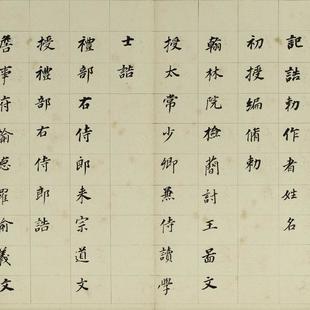 記誥勅作者姓名
初授編脩勅
翰林院檢討王啚文
授太常少卿兼侍讀學
士誥
禮部右侍郎来宗道文
授禮部右侍郎誥
詹事府諭德羅俞義文